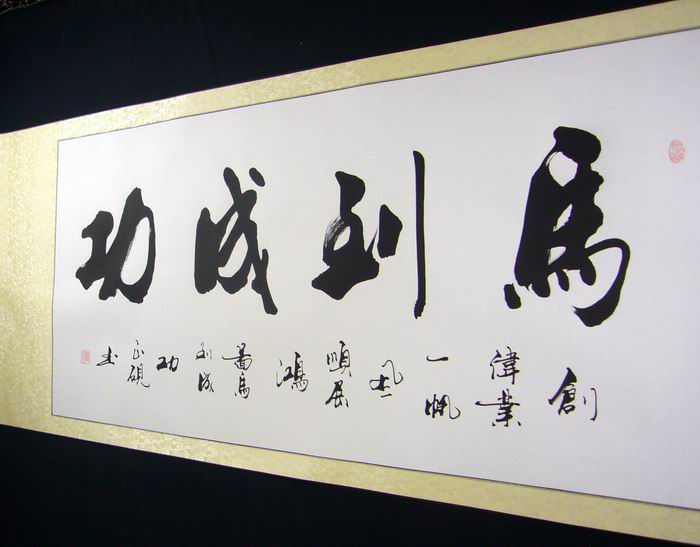 馬到成功
創
偉業
一帆
風
順展
鴻
圖馬
到成
功
正硯
书